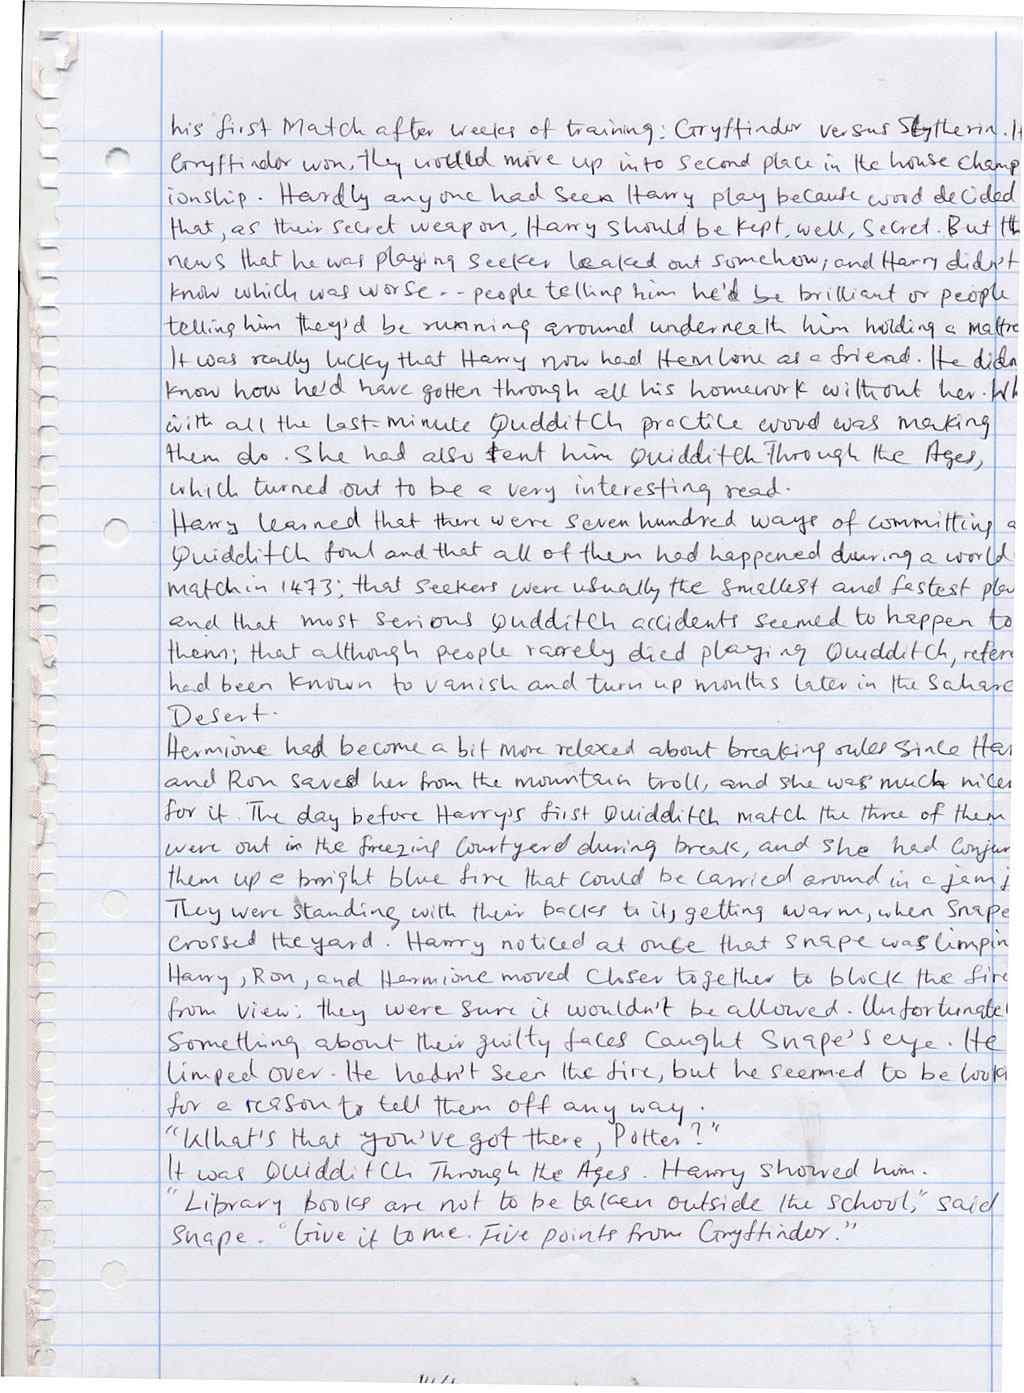 his first Match after weeks of training: Gryffindor versus Slytherin. If
Gryffindor won, they would move up into second place in the house champ
ionship. Hardly anyone had seen Harry play because wood decided
that, as their secret weapon, Harry should be kept, well, secret. But th
news that he was playing seeker leaked out somehow, and Harry didn't
know which was worse -- people telling him he'd be brilliant or people
telling him they'd be running around underneath him holding a mattre
It was really lucky that Harry now had Hemione as a friend. He didn
know how he'd have gotten through all his homework without her. Wh
with all the last-minute Qudditch practice wood was making
them do. She had also lent him Quidditch Through the Ages,
which turned out to be a very interesting read.
Harry learned that there were seven hundred ways of committing a
Quidditch foul and that all of them had happened during a world
match in 1473; that seekers were usually the smallest and fastest play
and that most serious Qudditch accidents seemed to happen to
them; that although people rarely died playing Quidditch, refere
had been known to vanish and turn up months later in the Sahara
Desert.
Hermione had become a bit more relaxed about breaking rules since Har
and Ron saved her from the mountain troll, and she was much nicer
for it. The day before Harry's first Quidditch match the three of them
were out in the freezing courtyard during break, and she had conjur
them up a bright blue fire that could be carried around in a jam j
They were standing with their backs to it, getting warm, when Snape
crossed the yard. Harry noticed at once that snape was limpin
Harry, Ron, and Hermione moved closer together to block the fire
from view; they were sure it wouldn't be allowed. Unfortunatel
something about their guilty faces caught Snape's eye. He
limped over. He hadn't seen the fire, but he seemed to be looki
for a reason to tell them off any way.
"What's that you've got there, Potter?"
It was Quidditch Through the Ages. Harry showed him.
"Library books are not to be taken outside the school," said
Snape. "Give it to me. Five points from Gryffindor."